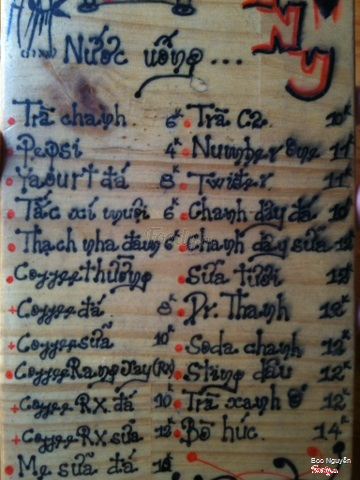 Nước uống ...
Trà chanh 6K
Pepsi 4K
Yaourt đá 8K
Tắc xí muội 6K
Thạch nha đam 6K
Coffee thường
+ Coffee đá 8K
+ Coffee sữa 10K
Coffee Rang Xay (RX)
+ Coffee RX đá 10K
+ Coffee RX sữa 12K
Me sữa đá
Trà C2 10K
Number One 11K
Twister 11K
Chanh dây đá 10K
Chanh dây sữa 12K
Sữa tươi 12K
Dr. Thanh 12K
Soda chanh 12K
Sting dâu 12K
Trà xanh 0° 12K
Bò húc 14K
Boo Nguyễn